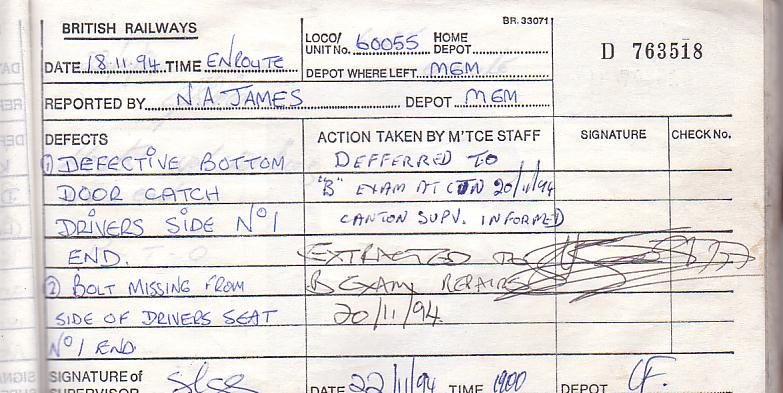 BR. 33071
BRITISH RAILWAYS
LOCO/ UNIT No. 60055 HOME DEPOT
D 763518
DATE 18.11.94 TIME ENROUTE
DEPOT WHERE LEFT MGM
REPORTED BY N.A. JAMES DEPOT MGM
DEFECTS ACTION TAKEN BY M'TCE STAFF SIGNATURE CHECK No.
① DEFECTIVE BOTTOM DEFFERRED TO
DOOR CATCH "B" EXAM AT CTN 20/11/94
DRIVERS SIDE No 1 CANTON SUPV. INFORMED
END. EXTRACTED TO
② BOLT MISSING FROM B EXAM REPAIRS
SIDE OF DRIVERS SEAT 20/11/94
No 1 END
SIGNATURE of SUPERVISOR DATE 22/11/94 TIME 1900 DEPOT CF.